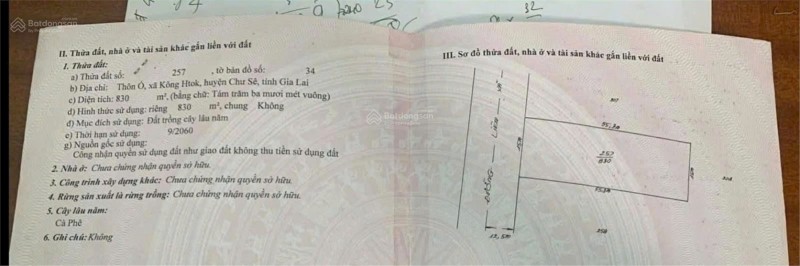 32
Batdongsan
II. Thửa đất, nhà ở và tài sản khác gắn liền với đất
1. Thửa đất:
a) Thửa đất số: 257 , tờ bản đồ số: 34
b) Địa chỉ: Thôn Ó, xã Kông Htok, huyện Chư Sê, tỉnh Gia Lai
c) Diện tích: 830 m², (bằng chữ: Tám trăm ba mươi mét vuông)
d) Hình thức sử dụng: riêng 830 m², chung Không
đ) Mục đích sử dụng: Đất trồng cây lâu năm
e) Thời hạn sử dụng: 9/2060
g) Nguồn gốc sử dụng:
Công nhận quyền sử dụng đất như giao đất không thu tiền sử dụng đất
2. Nhà ở: Chưa chứng nhận quyền sở hữu
3. Công trình xây dựng khác: Chưa chứng nhận quyền sở hữu.
4. Rừng sản xuất là rừng trồng: Chưa chứng nhận quyền sở hữu.
5. Cây lâu năm:
Cà Phê
6. Ghi chú: Không
III. Sơ đồ thửa đất, nhà ở và tài sản khác gắn liền với đất
257
830
258
Batdongsan